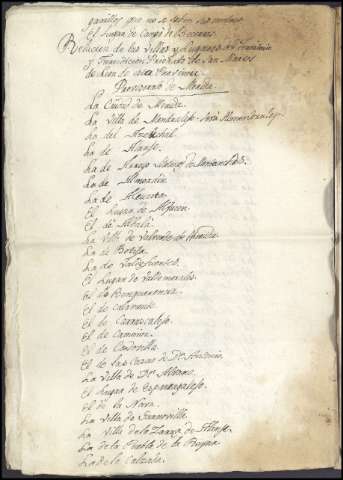 que no se
el Lugar de Campo de
Relacion de las Villas y Lugares del territorio
y Jurisdiccion Priorato de San Marcos
de Leon
Provisorato de Merida
La Ciudad de Merida
La Villa de Montanches
La del
La de Alange
La de Arroyo Molinos de Montanches
La de Almoarin
La de Alcuescar
El Lugar de
El de Albalá
La Villa de Valverde de Merida
La de Botija
La de Valdefuentes
El Lugar de Valdemorales
El de Benquerencia
El de Calamonte
El de Carrascalejo
El de Carmonita
El de Cordovilla
El de las Casas de Dn Antonio
La Villa de Dn Alvaro
El Lugar de Esparragalejo
El de la Nava
La Villa de Lacanovilla
La Villa de la Zarza de Alange
La de la Puebla de la
La de la Calzada